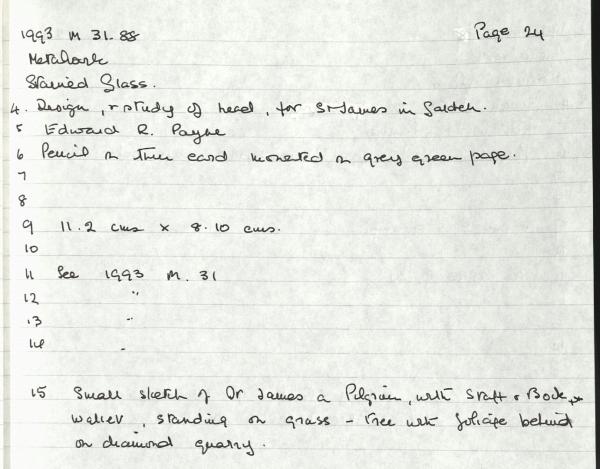 1993 M 31.88 Page 24
Metalwork
Stained Glass.
4. Design, + study of head, for St James in Garden.
5 Edward R. Payne
6 Pencil on thin card mounted on grey green page.
7
8
9 11.2 cms x 8.10 cms.
10
11 See 1993 M. 31
12 "
13 "
14 "
15 Small sketch of St James a Pilgrim, with Staff & Book,
standing on grass - tree with foliage behind
on diamond quarry.